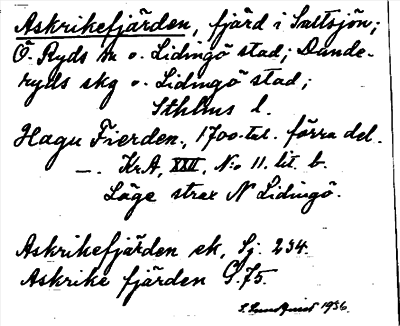 Askrikefjärden, fjärd i Saltsjön;
Ö. Ryds sn o. Lidingö stad; Dande-
ryds skg o. Lidingö stad;
Sthlms l.
Hagu Fierden, 1700-tal. förra del.
—. KrA, XXII, N:o 11. lit. b.
Läge strax N Lidingö.
Askrikefjärden ek, Sj. 234.
Askrike fjärden G.75.
S. Sundqvist 1936.